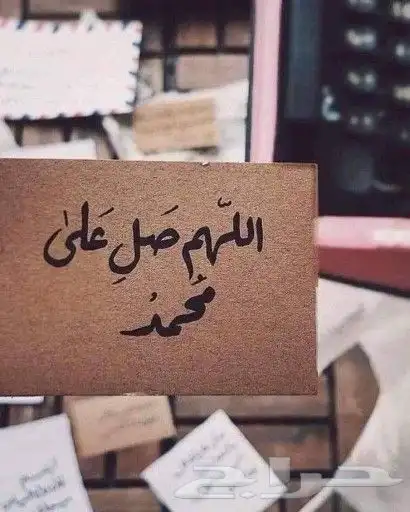 اللّهم صَلِ عَلىٰ
مُحمدْ
حراج